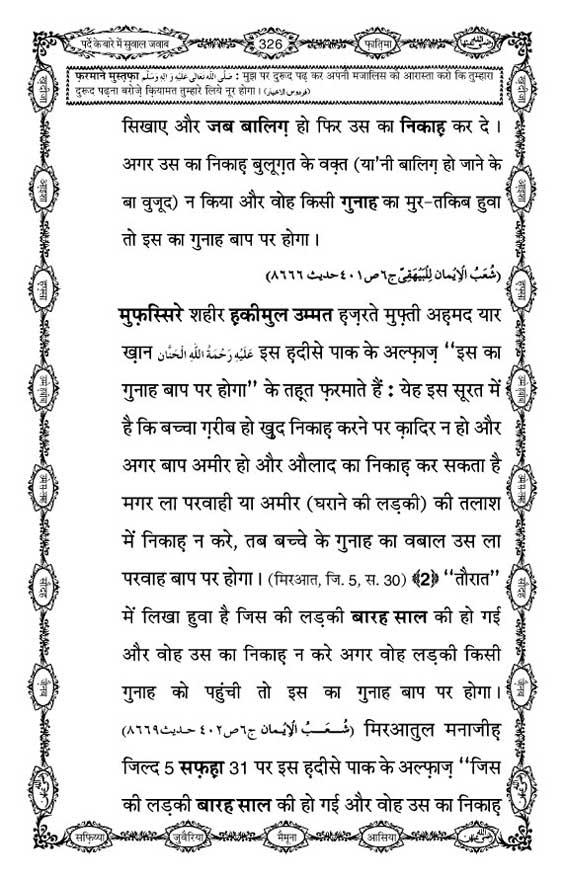 पर्दे के बारे में सुवाल जवाब
326
फ़ातिमा
फ़रमाने मुस्तफ़ा صَلَّى اللهُ تَعَالٰى عَلَيْهِ وَاٰلِهٖ وَسَلَّم : मुझ पर दुरूद पढ़ कर अपनी मजालिस को आरास्ता करो कि तुम्हारा
दुरूद पढ़ना बरोज़े क़ियामत तुम्हारे लिये नूर होगा। (فردوس الاخبار)
सिखाए और जब बालिग़ हो फिर उस का निकाह कर दे ।
अगर उस का निकाह बुलूग़त के वक़्त (या'नी बालिग़ हो जाने के
बा वुजूद) न किया और वोह किसी गुनाह का मुर-तकिब हुवा
तो इस का गुनाह बाप पर होगा ।
(شُعَبُ الْاِيْمَان لِلْبَيْهَقِيّ ج٦ص٤٠١حديث ٨٦٦٦)
मुफ़स्सिरे शहीर हकीमुल उम्मत हज़रते मुफ़्ती अहमद यार
ख़ान عَلَيْهِ رَحْمَةُ اللهِ الْحَنَّان इस हदीसे पाक के अल्फ़ाज़ ‘‘इस का
गुनाह बाप पर होगा’’ के तहत फ़रमाते हैं : येह इस सूरत में
है कि बच्चा ग़रीब हो खुद निकाह करने पर क़ादिर न हो और
अगर बाप अमीर हो और औलाद का निकाह कर सकता है
मगर ला परवाही या अमीर (घराने की लड़की) की तलाश
में निकाह न करे, तब बच्चे के गुनाह का वबाल उस ला
परवाह बाप पर होगा । (मिरआत, जि. 5, स. 30) ﴾2﴿ ‘‘तौरात’’
में लिखा हुवा है जिस की लड़की बारह साल की हो गई
और वोह उस का निकाह न करे अगर वोह लड़की किसी
गुनाह को पहुंची तो इस का गुनाह बाप पर होगा ।
(شُعَبُ الْاِيْمَان ج٦ص٤٠٢ حديث٨٦٦٩) मिरआतुल मनाजीह
जिल्द 5 सफ़हा 31 पर इस हदीसे पाक के अल्फ़ाज़ ‘‘जिस
की लड़की बारह साल की हो गई और वोह उस का निकाह
सफ़िय्या
जुवैरिया
मैमूना
आसिया